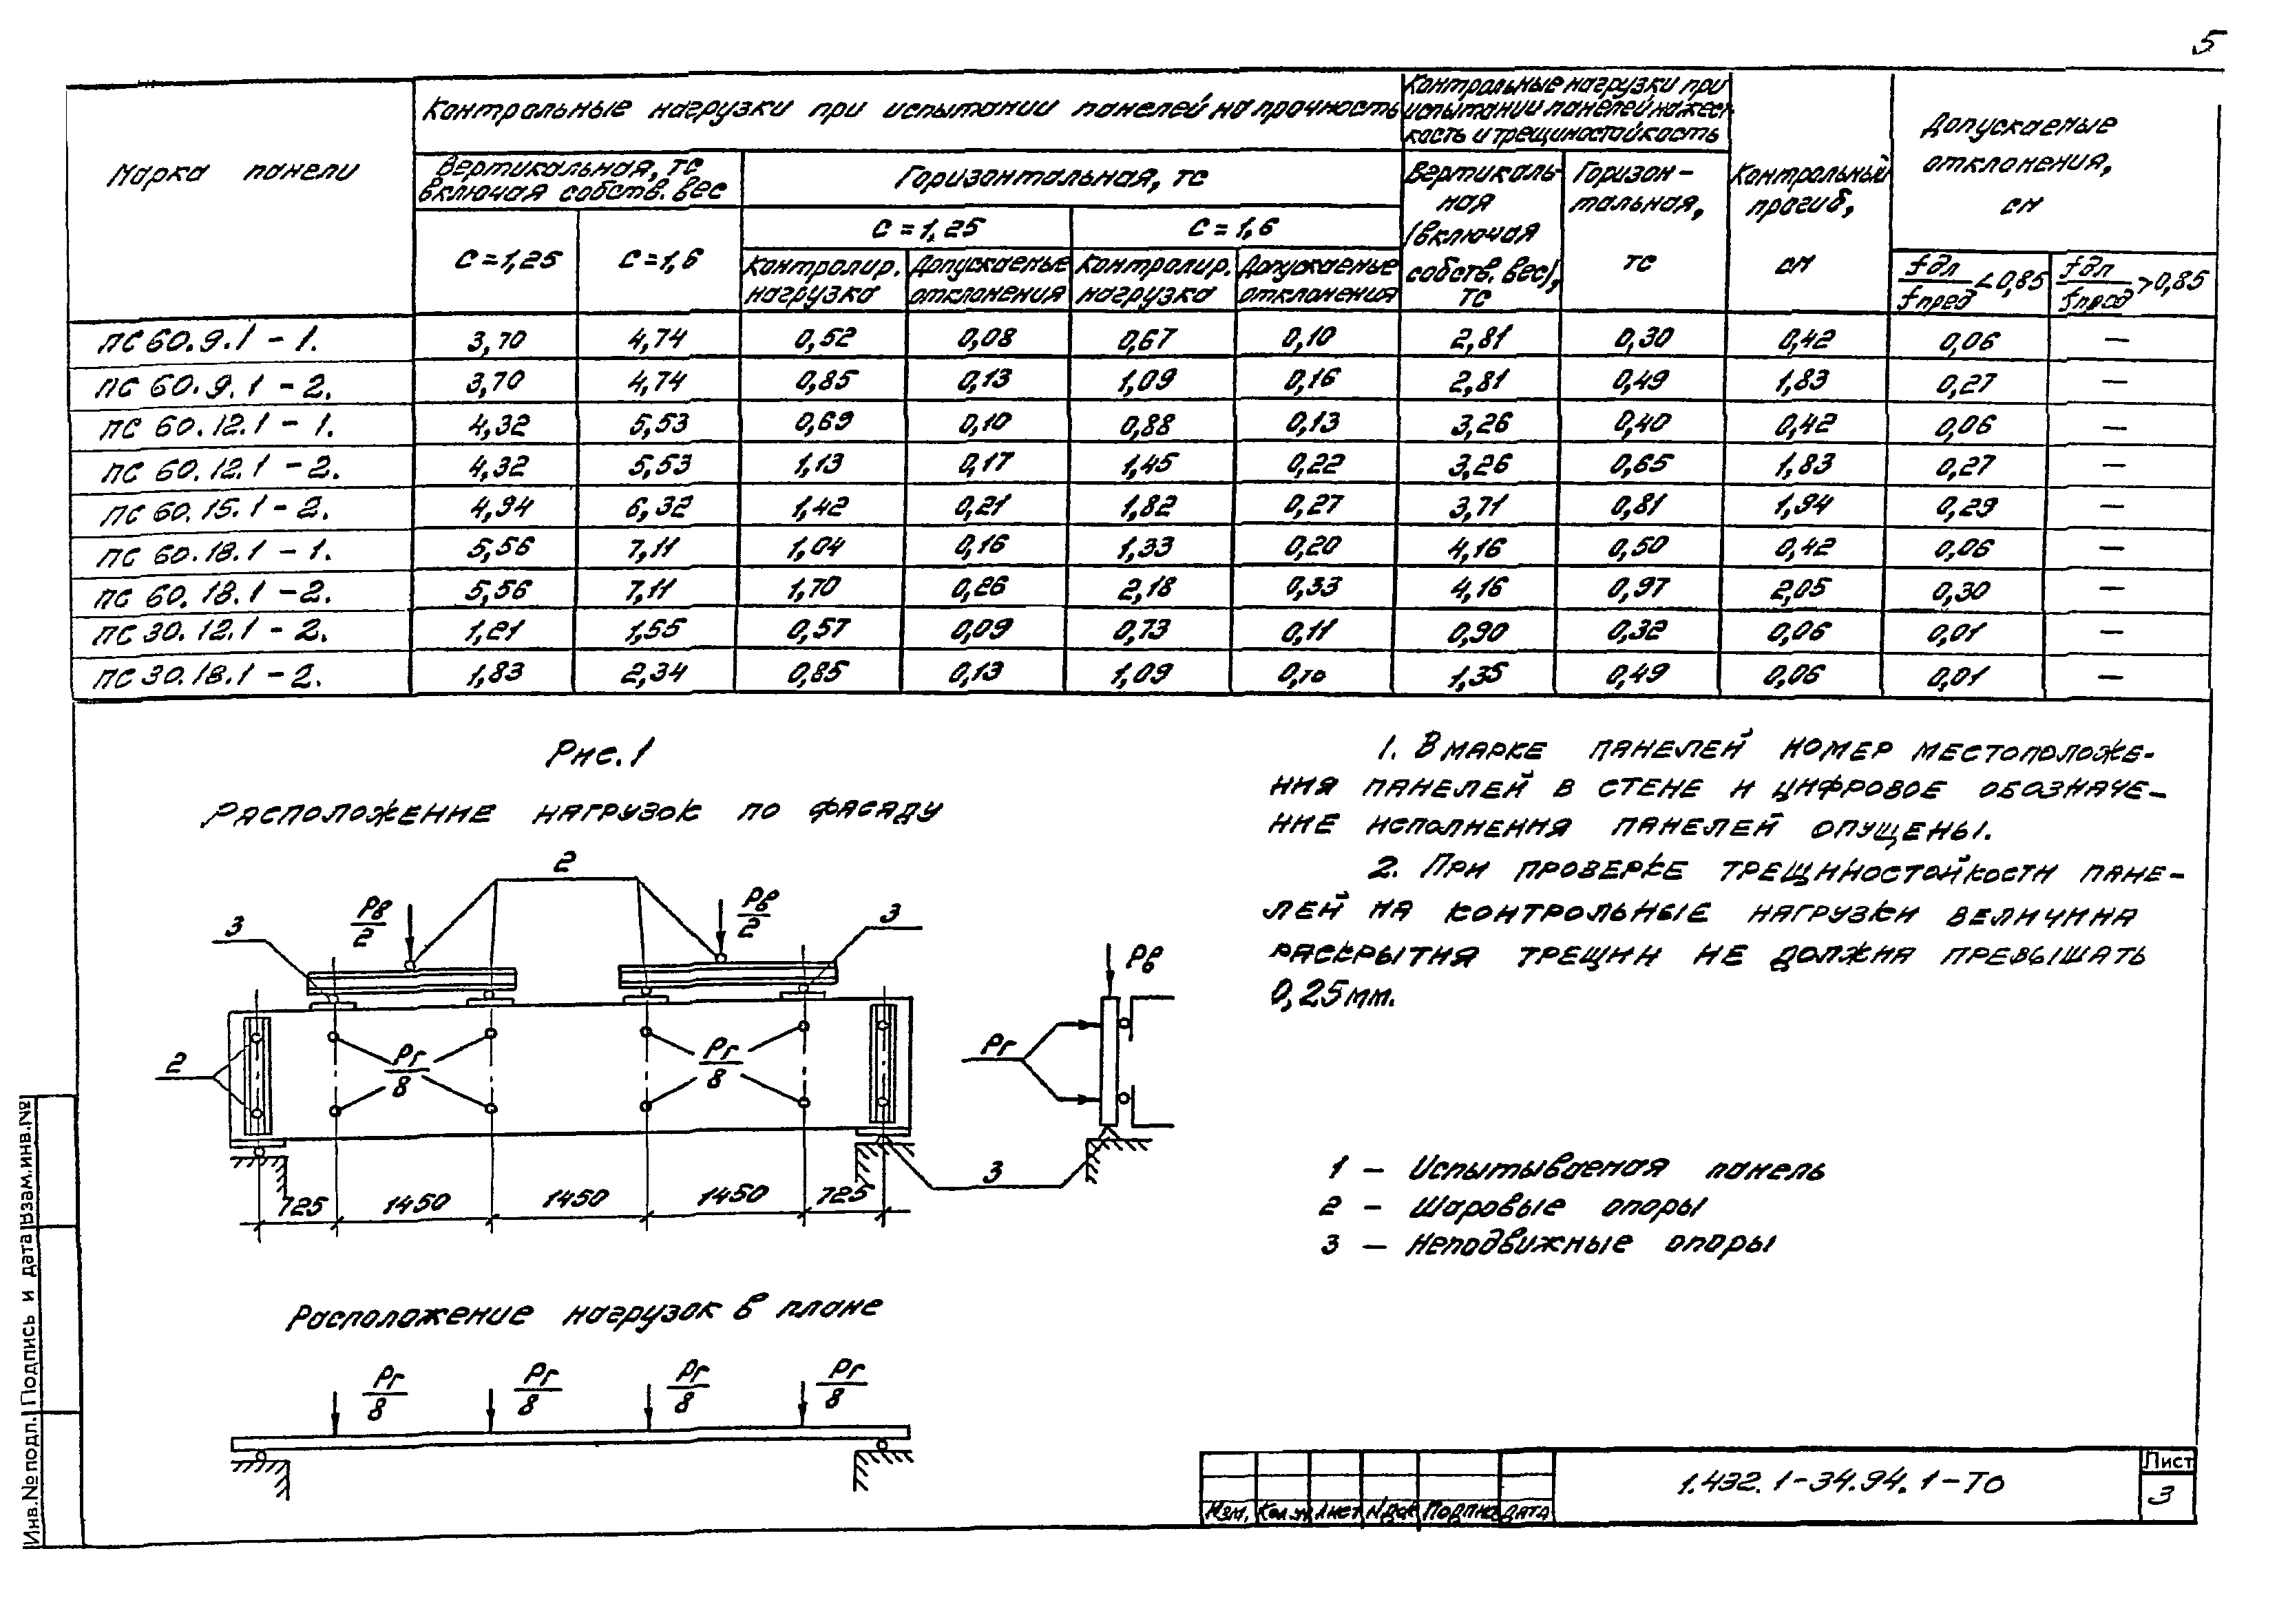 5
Марка панели
Контрольные нагрузки при испытании панелей на прочность
Контрольные нагрузки при
испытании панелей на жест-
кость и трещиностойкость
Контрольный
прогиб,
см
Допускаемые
отклонения,
см
Вертикальная, тс
включая собств. вес
Горизонтальная, тс
Вертикаль-
ная
(включая
собств. вес),
тс
Горизон-
тальная,
тс
С = 1,25
С = 1,6
С = 1,25
С = 1,6
Контролир. нагрузка
Допускаемые отклонения
Контролир. нагрузка
Допускаемые отклонения
fдл/fпред < 0,85
fдл/fпред > 0,85
ПС 60.9.1 - 1. 3,70 4,74 0,52 0,08 0,67 0,10 2,81 0,30 0,42 0,06 —
ПС 60.9.1 - 2. 3,70 4,74 0,85 0,13 1,09 0,16 2,81 0,49 1,83 0,27 —
ПС 60.12.1 - 1. 4,32 5,53 0,69 0,10 0,88 0,13 3,26 0,40 0,42 0,06 —
ПС 60.12.1 - 2. 4,32 5,53 1,13 0,17 1,45 0,22 3,26 0,65 1,83 0,27 —
ПС 60.15.1 - 2. 4,94 6,32 1,42 0,21 1,82 0,27 3,71 0,81 1,94 0,29 —
ПС 60.18.1 - 1. 5,56 7,11 1,04 0,16 1,33 0,20 4,16 0,50 0,42 0,06 —
ПС 60.18.1 - 2. 5,56 7,11 1,70 0,26 2,18 0,33 4,16 0,97 2,05 0,30 —
ПС 30.12.1 - 2. 1,21 1,55 0,57 0,09 0,73 0,11 0,90 0,32 0,06 0,01 —
ПС 30.18.1 - 2. 1,83 2,34 0,85 0,13 1,09 1,35 0,49 0,06 0,01 —
Рис. 1
Расположение нагрузок по фасаду
2
3
Рв/2
Рв/2
3
Рг/8
Рг/8
2
3
725 1450 1450 1450 725
Рв
Рг
Расположение нагрузок в плане
Рг/8 Рг/8 Рг/8 Рг/8
1. В марке панелей номер местоположе-
ния панелей в стене и цифровое обозначе-
ние исполнения панелей опущены.
2. При проверке трещиностойкости пане-
лей на контрольные нагрузки величина
раскрытия трещин не должна превышать
0,25 мм.
1 — Испытываемая панель
2 — Шаровые опоры
3 — Неподвижные опоры
Инв.№ подл. Подпись и дата Взам.инв.№
Изм. Кол.уч Лист №док Подпись Дата
1.432.1-34.94.1-ТО
Лист
3